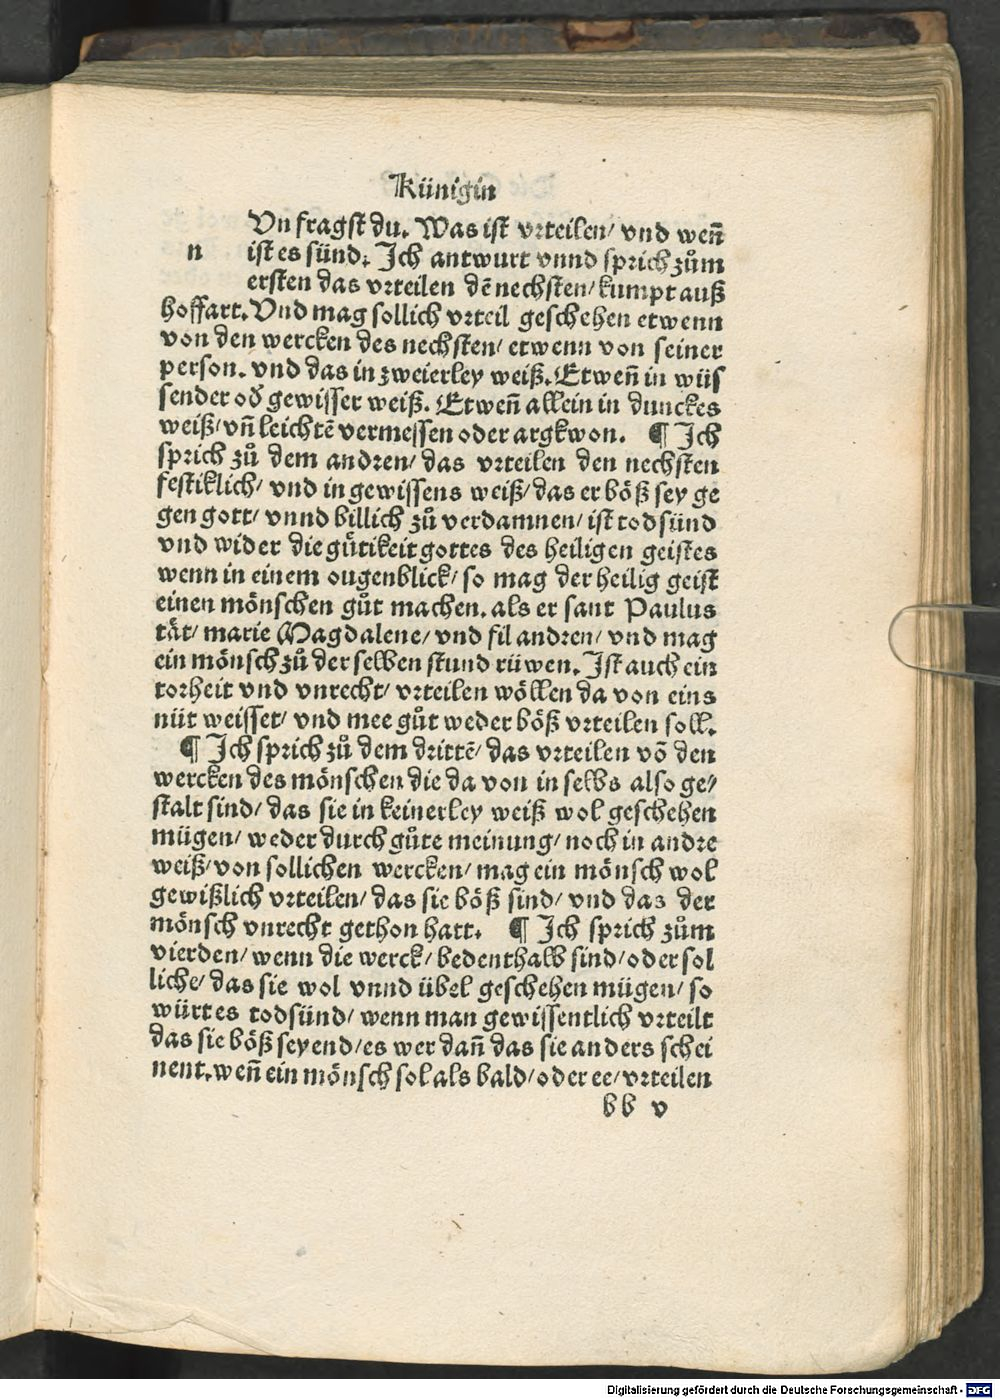 Künigin
Vn fragst du. Was ist vꝛteilen/ vnd weñ
n ist es sünd. Ich antwurt vnnd sprich zům
ersten das vꝛteilen dē nechsten/ kumpt auß
hoffart. Vnd mag sollich vꝛteil geschehen etwenn
von den wercken des nechsten/ etwenn von seiner
person. vnd das in zweierley weiß. Etweñ in wüs
sender oď gewisser weiß. Etweñ allein in dunckes
weiß/ vñ leichtē vermessen oder argkwon. ¶ Ich
sprich zů dem andren/ das vꝛteilen den nechsten
festiklich/ vnd in gewissens weiß/ das er böß sey ge
gen gott/ vnnd billich zů verdamnen/ ist todsünd
vnd wider die gůtikeit gottes des heiligen geistes
wenn in einem ougenblick/ so mag der heilig geist
einen mönschen gůt machen. als er sant Paulus
tät/ marie Magdalene/ vnd fil andren/ vnd mag
ein mönsch zů der selben stund rüwen. Ist auch ein
toꝛheit vnd vnrecht/ vꝛteilen wöllen da von eins
nüt weisset/ vnd mee gůt weder böß vꝛteilen soll.
¶ Ich sprich zů dem drittē/ das vꝛteilen vō den
wercken des mönschen die da von in selbs also ge/
stalt sind/ das sie in keinerley weiß wol geschehen
mügen/ weder durch gůte meinung/ noch in andꝛe
weiß/ von sollichen wercken/ mag ein mönsch wol
gewißlich vꝛteilen/ das sie böß sind/ vnd das der
mönsch vnrecht gethon hatt. ¶ Ich sprich zům
vierden/ wenn die werck/ bedenthalb sind/ oder sol
liche/ das sie wol vnnd übel geschehen mügen/ so
würt es todsünd/ wenn man gewissentlich vꝛteilt
das sie böß seyend/ es wer dañ das sie anders schei
nent. weñ ein mönsch sol als bald/ oder ee/ vꝛteilen
bb v
Digitalisierung gefördert durch die Deutsche Forschungsgemeinschaft - DFG